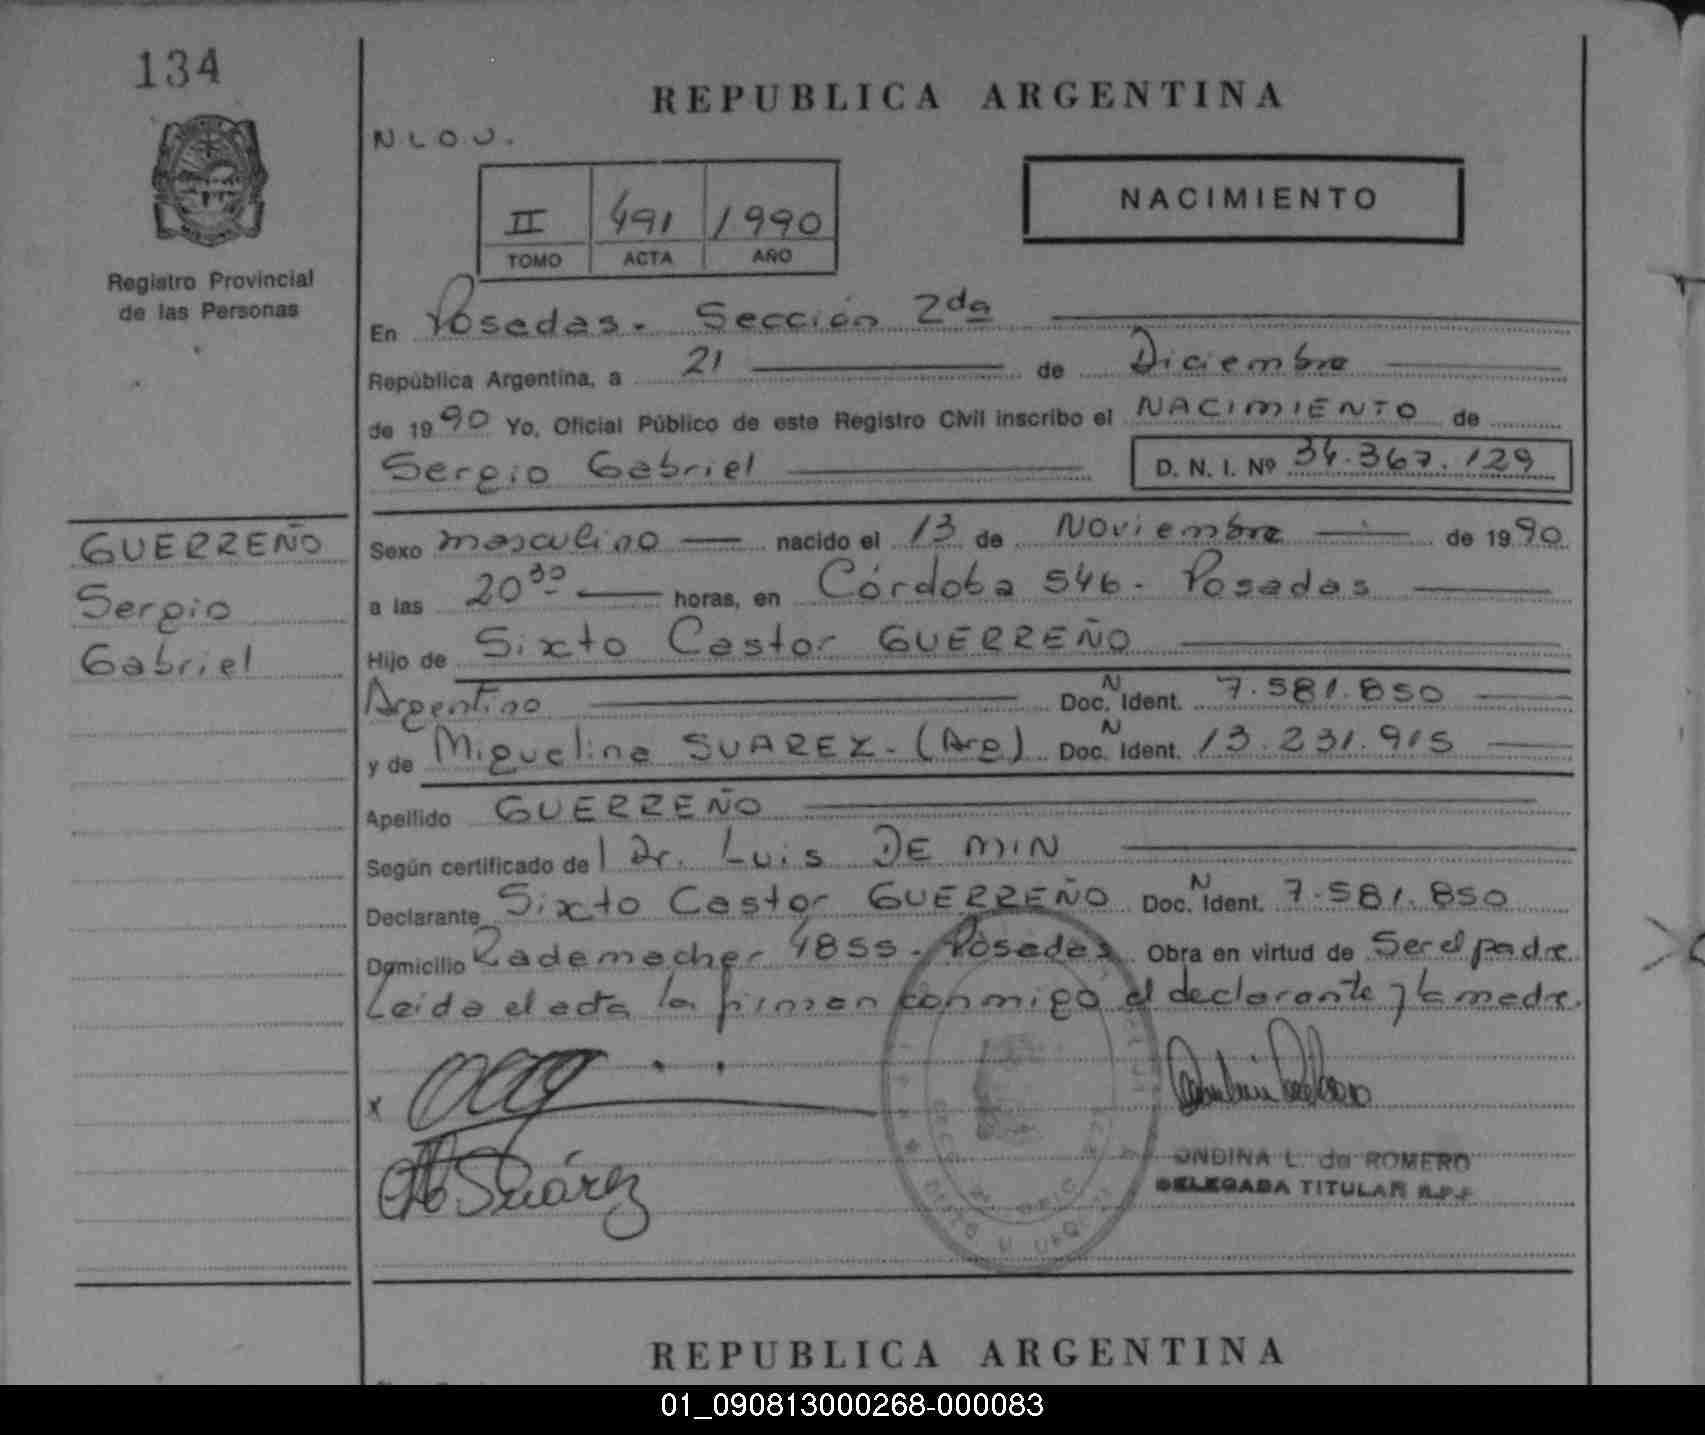 134
REPUBLICA ARGENTINA
N L O U.
NACIMIENTO
II 491 1990
TOMO ACTA AÑO
Registro Provincial
de las Personas
En Posadas. Sección 2da
República Argentina, a 21 de Diciembre
de 1990 Yo, Oficial Público de este Registro Civil inscribo el NACIMIENTO de
Sergio Gabriel D. N. I. Nº 34.367.129
GUERREÑO
Sergio
Gabriel
Sexo masculino nacido el 13 de Noviembre de 1990
a las 20 30 horas, en Córdoba 546 - Posadas
Hijo de Sixto Castor GUERREÑO
Argentino Doc. N Ident. 7.581.850
y de Miguelina SUAREZ - (Arg) Doc. N Ident. 13.231.915
Apellido GUERREÑO
Según certificado de l Dr. Luis DE MIN
Declarante Sixto Castor GUERREÑO Doc. N Ident. 7.581.850
Domicilio Rademacher 4855 - Posadas Obra en virtud de Ser el padre.
Leida el acta la firman conmigo el declarante y la madre.
x
Suárez
ONDINA L. de ROMERO
DELEGADA TITULAR R.P.P
REPUBLICA ARGENTINA
01_090813000268-000083